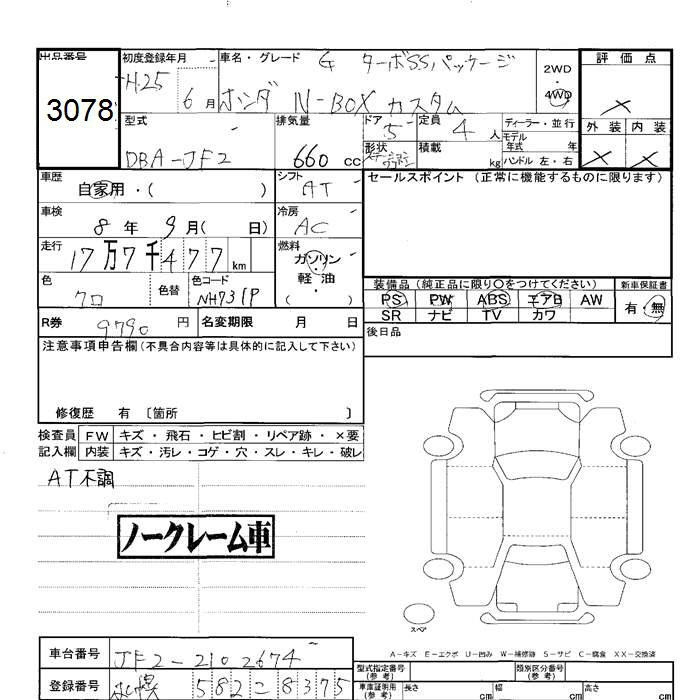 出品番号 3078
初度登録年月 H25 6月
車名・グレード G ターボSSパッケージ
ホンダ N-BOX カスタム
2WD
4WD
評価点
×
外装 内装
× ×
型式 DBA-JF2
排気量 660 cc
ドア 5
定員 4 人
形状
積載 kg
ディーラー・並行
モデル年式 年
ハンドル 左・右
車歴 自家用・( )
シフト AT
セールスポイント (正常に機能するものに限ります)
車検 8年 9月( 日)
冷房 AC
走行 17万7千477km
燃料 ガソリン・軽油
( )
色 クロ
色替
色コード NH731P
装備品 (純正品に限り○をつけてください)
新車保証書
PS PW ABS エアB AW
SR ナビ TV カワ
有・無
R券 9790 円
名変期限 月 日
後日品
注意事項申告欄(不具合内容等は具体的に記入して下さい)
修復歴 有 〔箇所 〕
検査員記入欄
FW キズ・飛石・ヒビ割・リペア跡・×要
内装 キズ・汚レ・コゲ・穴・スレ・キレ・破レ
AT不調
ノークレーム車
スペア
A-キズ E-エクボ U-凹み W-補修跡 S-サビ C-腐食 XX-交換済
車台番号 JF2-2102674
型式指定番号(参考)
類別区分番号(参考)
登録番号 札幌 582こ8375
車庫証明用(参考)
長さ cm
幅 cm
高さ cm